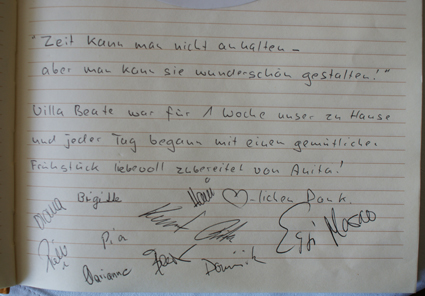 "Zeit kann man nicht anhalten -
aber man kann sie wunderschön gestalten!"
Villa Beate war für 1 Woche unser zu Hause
und jeder Tag begann mit einen gemütlichen
Frühstück liebevoll zubereitet von Anita!
♡-lichen Dank.
Brigitte
Pia
Marianne
Dominik